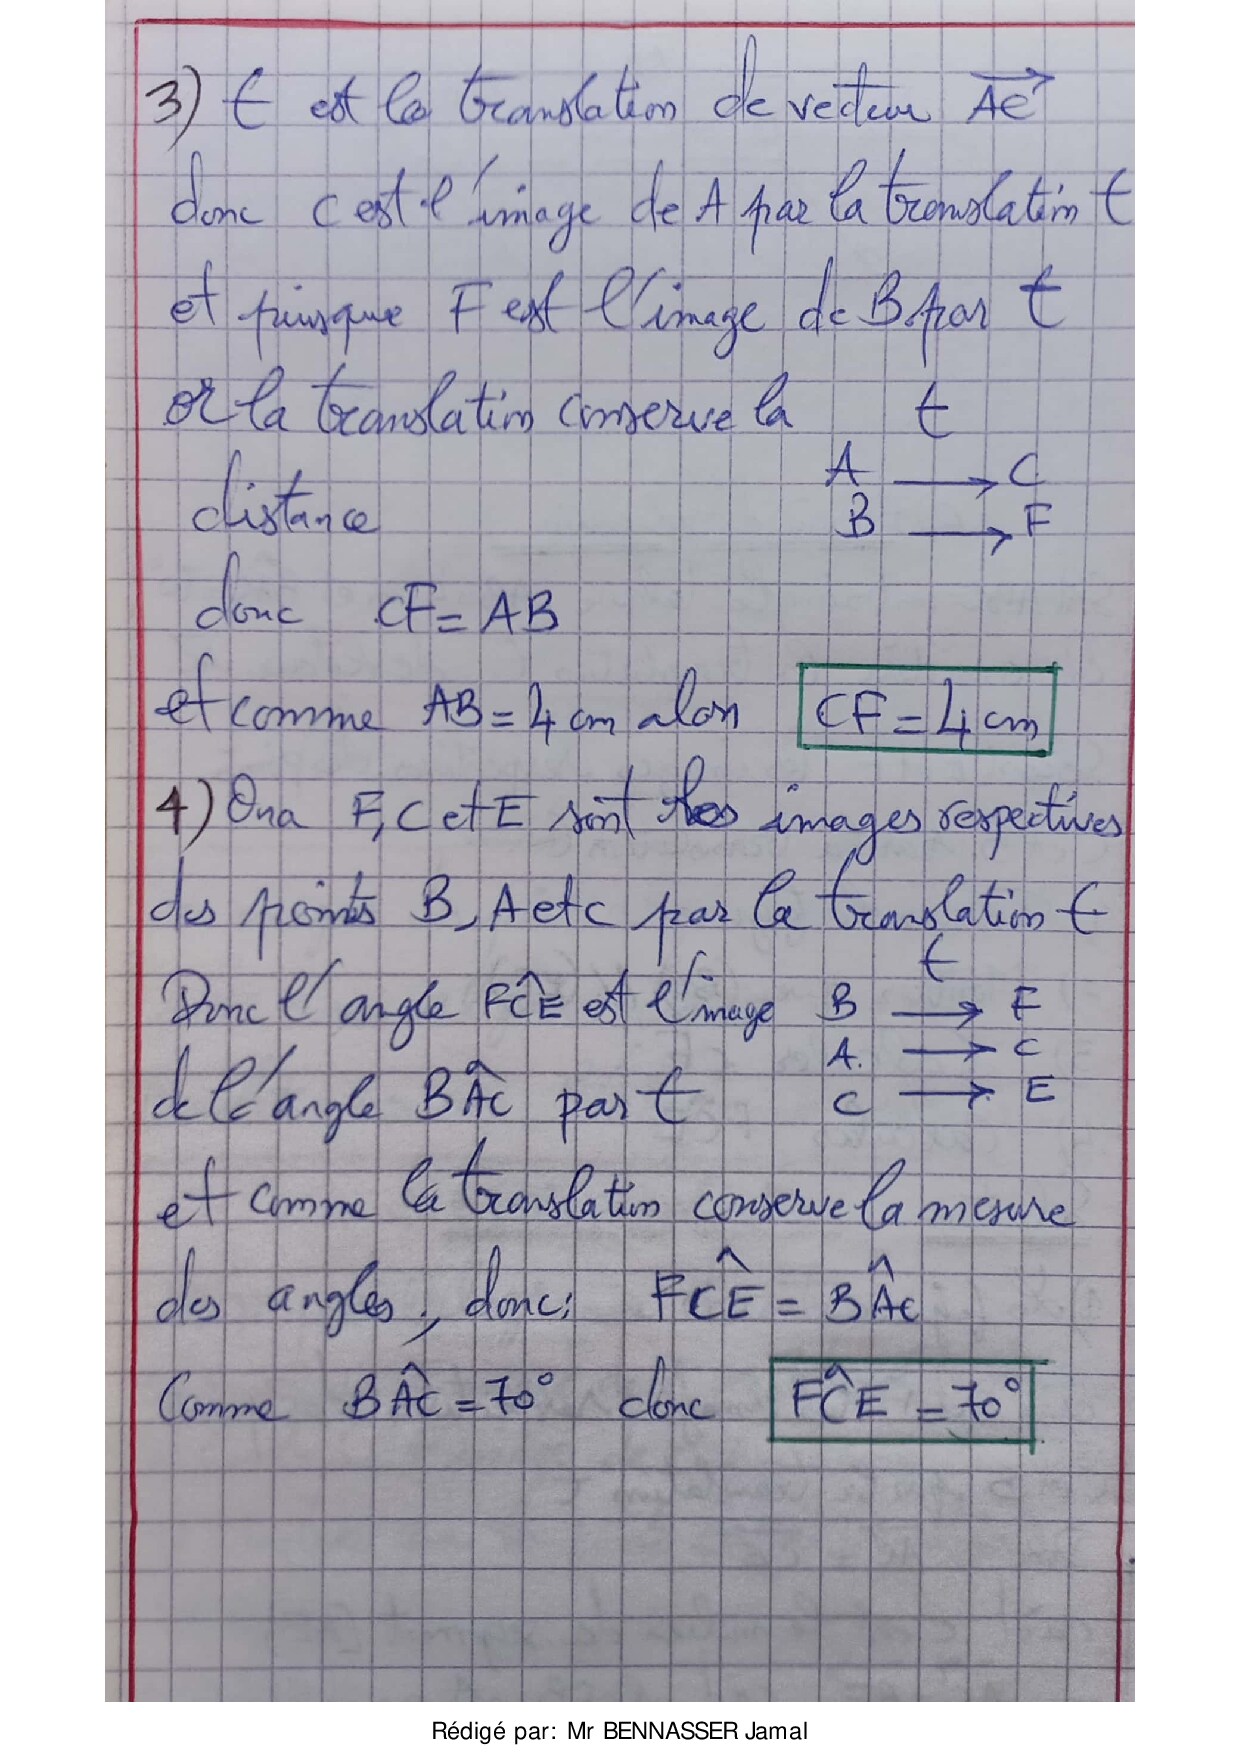 3) t est la translation de vecteur AC
donc C est l'image de A par la translation t
et puisque F est l'image de B par t
or la translation conserve la t
A → C
distance B → F
donc CF = AB
et comme AB = 4 cm alors CF = 4 cm
4) On a F, C et E sont les images respectives
des points B, A et C par la translation t
t
Donc l'angle FĈE est l'image B → F
A → C
de l'angle BÂC par t C → E
et comme la translation conserve la mesure
des angles, donc: FĈE = BÂC
Comme BÂC = 70° donc FĈE = 70°
Rédigé par: Mr BENNASSER Jamal